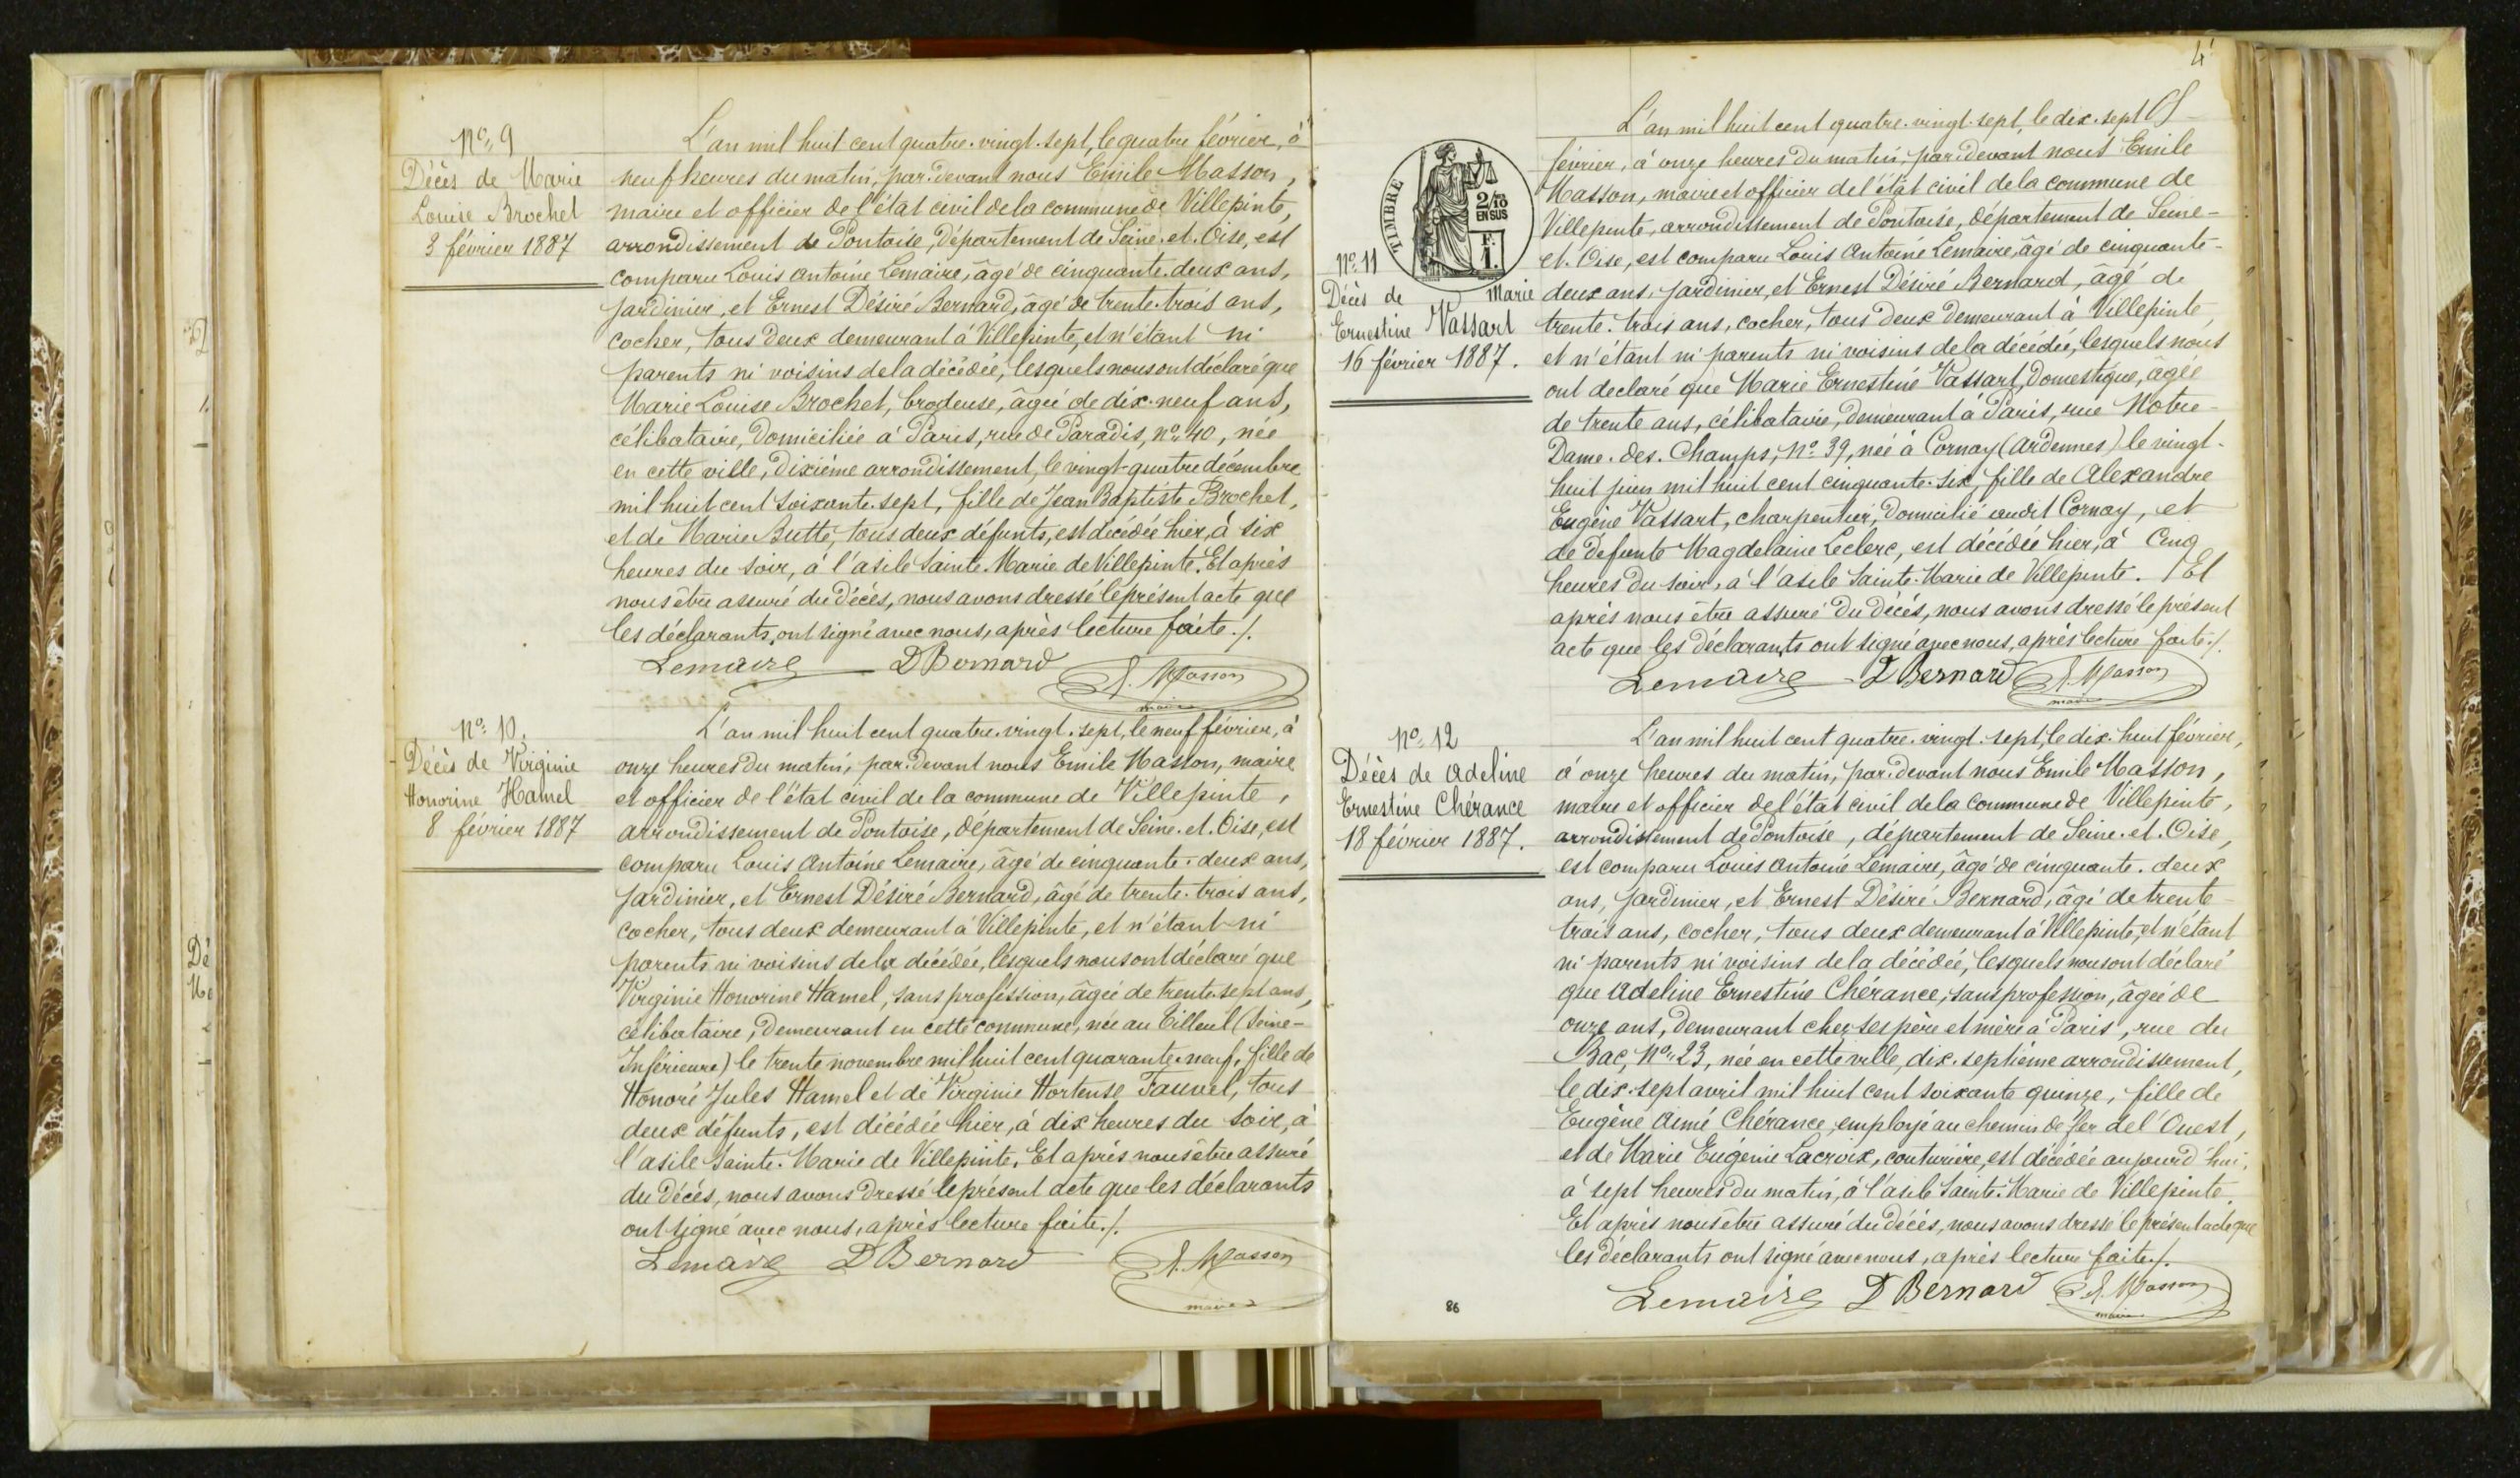 Nº 9
Décès de Marie
Louise Brochet
3 février 1887
L'an mil huit cent quatre-vingt-sept, le quatre février, à
neuf heures du matin, par-devant nous Emile Masson,
maire et officier de l'état civil de la commune de Villepinte,
arrondissement de Pontoise, département de Seine-et-Oise, est
comparu Louis Antoine Lemaire, âgé de cinquante-deux ans,
jardinier, et Ernest Désiré Bernard, âgé de trente-trois ans,
cocher, tous deux demeurant à Villepinte, et n'étant ni
parents ni voisins de la décédée, lesquels nous ont déclaré que
Marie Louise Brochet, brodeuse, âgée de dix-neuf ans,
célibataire, domiciliée à Paris, rue de Paradis, nº 40, née
en cette ville, dixième arrondissement, le vingt-quatre décembre
mil huit cent soixante-sept, fille de Jean Baptiste Brochet,
et de Marie Butte, tous deux défunts, est décédée hier, à six
heures du soir, à l'asile Sainte-Marie de Villepinte. Et après
nous être assuré du décès, nous avons dressé le présent acte que
les déclarants, ont signé avec nous, après lecture faite./.
Lemaire D Bernard E. Masson
maire
Nº 10.
Décès de Virginie
Honorine Hamel
8 février 1887
L'an mil huit cent quatre-vingt-sept, le neuf février, à
onze heures du matin, par-devant nous Emile Masson, maire
et officier de l'état civil de la commune de Villepinte,
arrondissement de Pontoise, département de Seine-et-Oise, est
comparu Louis Antoine Lemaire, âgé de cinquante-deux ans,
jardinier, et Ernest Désiré Bernard, âgé de trente-trois ans,
cocher, tous deux demeurant à Villepinte, et n'étant ni
parents ni voisins de la décédée, lesquels nous ont déclaré que
Virginie Honorine Hamel, sans profession, âgée de trente-sept ans,
célibataire, demeurant en cette commune, née au Tilleul (Seine-
Inférieure) le trente novembre mil huit cent quarante-neuf, fille de
Honoré Jules Hamel et de Virginie Hortense Fauvel, tous
deux défunts, est décédée hier, à dix heures du soir, à
l'asile Sainte-Marie de Villepinte. Et après nous être assuré
du décès, nous avons dressé le présent acte que les déclarants
ont signé avec nous, après lecture faite./.
Lemaire D Bernard E. Masson
maire
4
TIMBRE
2/10
EN SUS
F.
1.
Nº 11
Décès de Marie
Ernestine Vassart
16 février 1887.
L'an mil huit cent quatre-vingt-sept, le dix-sept
février, à onze heures du matin, par-devant nous Emile
Masson, maire et officier de l'état civil de la commune de
Villepinte, arrondissement de Pontoise, département de Seine-
et-Oise, est comparu Louis Antoine Lemaire, âgé de cinquante-
deux ans, jardinier, et Ernest Désiré Bernard, âgé de
trente-trois ans, cocher, tous deux demeurant à Villepinte,
et n'étant ni parents ni voisins de la décédée, lesquels nous
ont declaré que Marie Ernestine Vassart, domestique, âgée
de trente ans, célibataire, demeurant à Paris, rue Notre-
Dame-des-Champs, Nº 39, née à Cornay (Ardennes) le vingt-
huit juin mil huit cent cinquante-six, fille de Alexandre
Eugène Vassart, charpentier, domicilié audit Cornay, et
de defunte Magdelaine Leclerc, est décédée hier, à cinq
heures du soir, à l'asile Sainte-Marie de Villepinte. / Et
après nous être assuré du décès, nous avons dressé le présent
acte que les déclarants ont signé avec nous, après lecture faite./.
Lemaire D Bernard E. Masson
maire
Nº 12
Décès de Adeline
Ernestine Chérance
18 février 1887.
L'an mil huit cent quatre-vingt-sept, le dix-huit février,
à onze heures du matin, par-devant nous Emile Masson,
maire et officier de l'état civil de la commune de Villepinte,
arrondissement de Pontoise, département de Seine-et-Oise,
est comparu Louis Antoine Lemaire, âgé de cinquante-deux
ans, jardinier, et Ernest Désiré Bernard, âgé de trente-
trois ans, cocher, tous deux demeurant à Villepinte, et n'étant
ni parents ni voisins de la décédée, lesquels nous ont déclaré
que Adeline Ernestine Chérance, sans profession, âgée de
onze ans, demeurant chez ses père et mère à Paris, rue du
Bac, Nº 23, née en cette ville, dix-septième arrondissement,
le dix-sept avril mil huit cent soixante quinze, fille de
Eugène Aimé Chérance, employé au chemin de fer de l'Ouest,
et de Marie Eugénie Lacroix, couturière, est décédée aujourd'hui,
à sept heures du matin, à l'asile Sainte-Marie de Villepinte.
Et après nous être assuré du décès, nous avons dressé le présent acte que
les déclarants ont signé avec nous, après lecture faite./.
Lemaire D Bernard E. Masson
maire
86